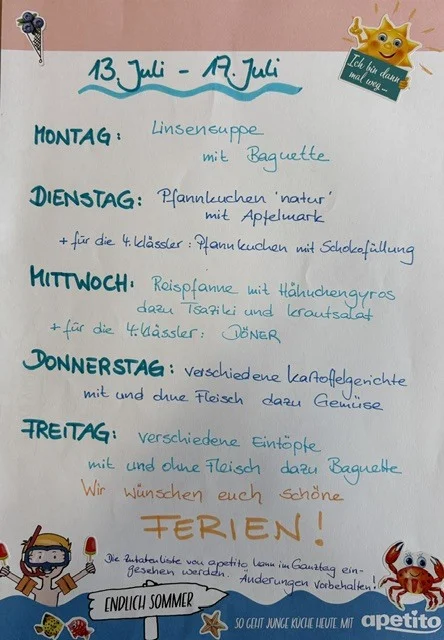 Ich bin dann
mal weg...
13. Juli - 17. Juli
MONTAG: Linsensuppe
mit Baguette
DIENSTAG: Pfannkuchen 'natur'
mit Apfelmark
+ für die 4. klässler: Pfannkuchen mit Schokofüllung
MITTWOCH: Reispfanne mit Hähnchengyros
dazu Tsaziki und Krautsalat
+ für die 4. klässler: DÖNER
DONNERSTAG: verschiedene Kartoffelgerichte
mit und ohne Fleisch dazu Gemüse
FREITAG: verschiedene Eintöpfe
mit und ohne Fleisch dazu Baguette
Wir wünschen euch schöne
FERIEN!
Die Zutatenliste von apetito kann im Ganztag ein-
gesehen werden. Änderungen vorbehalten!
ENDLICH SOMMER
SO GEHT JUNGE KÜCHE HEUTE. MIT apetito